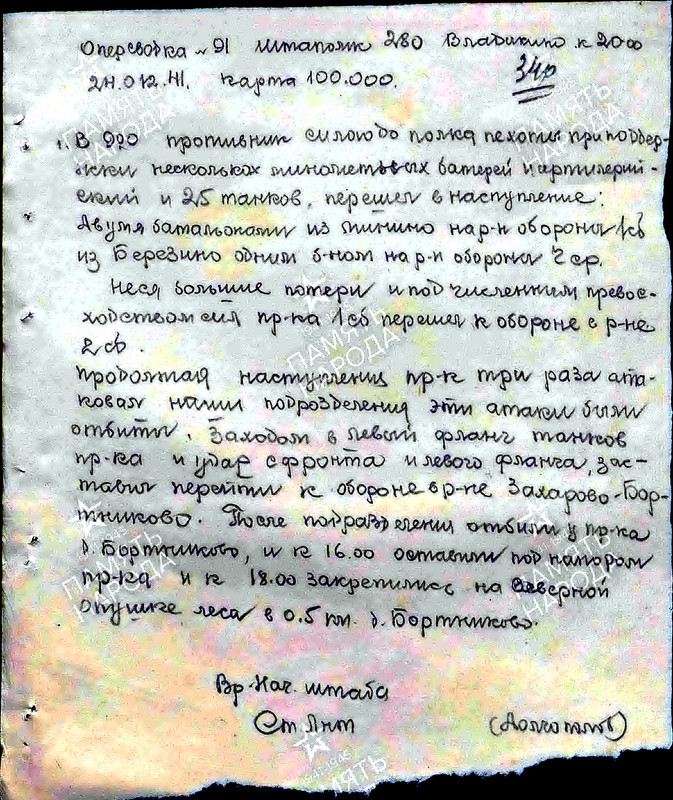 Оперсводка №91 штаполк 280 Владыкино к 20 00
24.012.41. карта 100.000.
34р
1. В 920 противник силою до полка пехоты при поддер-
жки нескольких минометных батерей и артилерий-
ский и 25 танков, перешел в наступление:
Двумя батальонами из Минино на р-н обороны 1сб
из Березино одним б-ном на р-н обороны 2 ср.
Неся большие потери и под численным превос-
ходством сил пр-ка 1сб перешел к обороне в р-не
2сб.
Продолжая наступления пр-к три раза ата-
ковал наши подрозделения эти атаки были
отбиты. Заходом в левый фланг танков
пр-ка и удар с фронта и левого фланга, зас-
тавил перейти к обороне в р-не Захарово-Бор-
тниково. После подразделения отбили у пр-ка
д. Бортниково, и к 16.00 оставили под напором
пр-ка и к 18.00 закрепились на северной
опушке леса в 0.5 км. д. Бортниково.
Вр. Нач. штаба
Ст Лнт (Долгополов)
ПАМЯТЬ
НАРОДА
ПАМЯТЬ
НАРОДА
ПАМЯТЬ
НАРОДА
ПАМЯТЬ
НАРОДА
ПАМЯТЬ
НАРОДА
1941-1945
ПАМЯТЬ